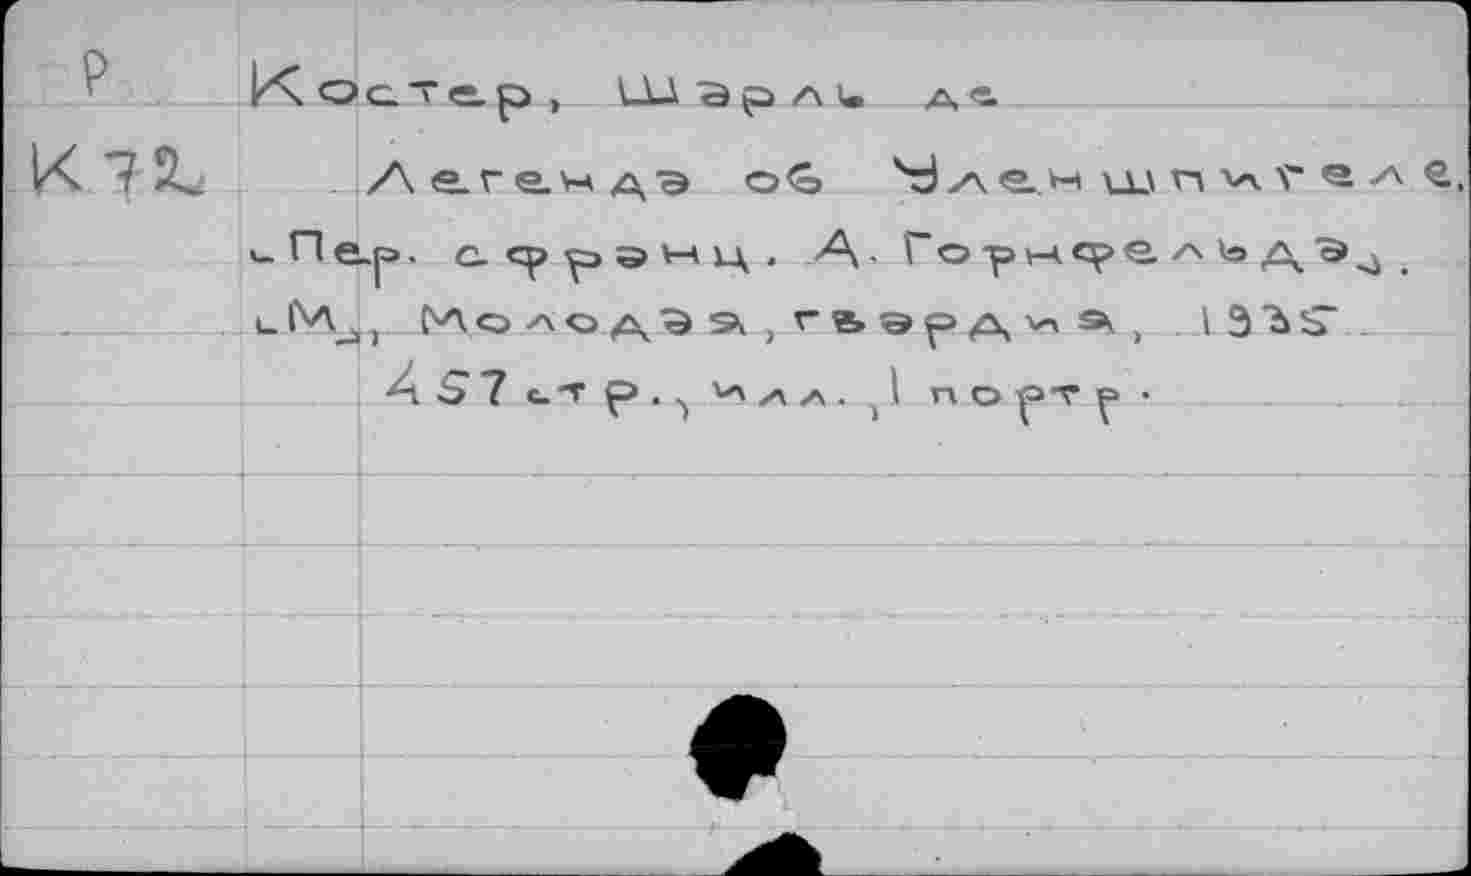 Р Костер, Шарль де
К72 Легенда об Уленшпигеле.
[Пер. с франц. А. Горнфельда].
[М], Молодая гвардия, 1935
457 стр., илл., 1 портр.